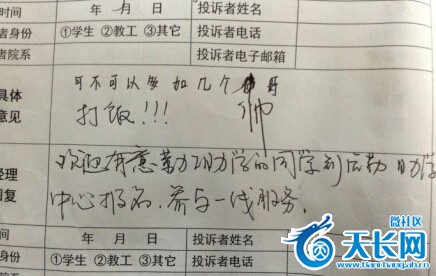 时间 年 月 日 投诉者姓名
者身份 ①学生 ②教工 ③其它 投诉者电话
者院系 投诉者电子邮箱
具体 可不可以多加几个帅哥
意见 打饭!!!
经理 欢迎有意勤工助学的同学到后勤助学
回复 中心报名,参与一线服务。
间 年 月 日 投诉者姓名
身份 ①学生 ②教工 ③其它 投诉者电话
微社区
天长网
www.tianchangshi.cn